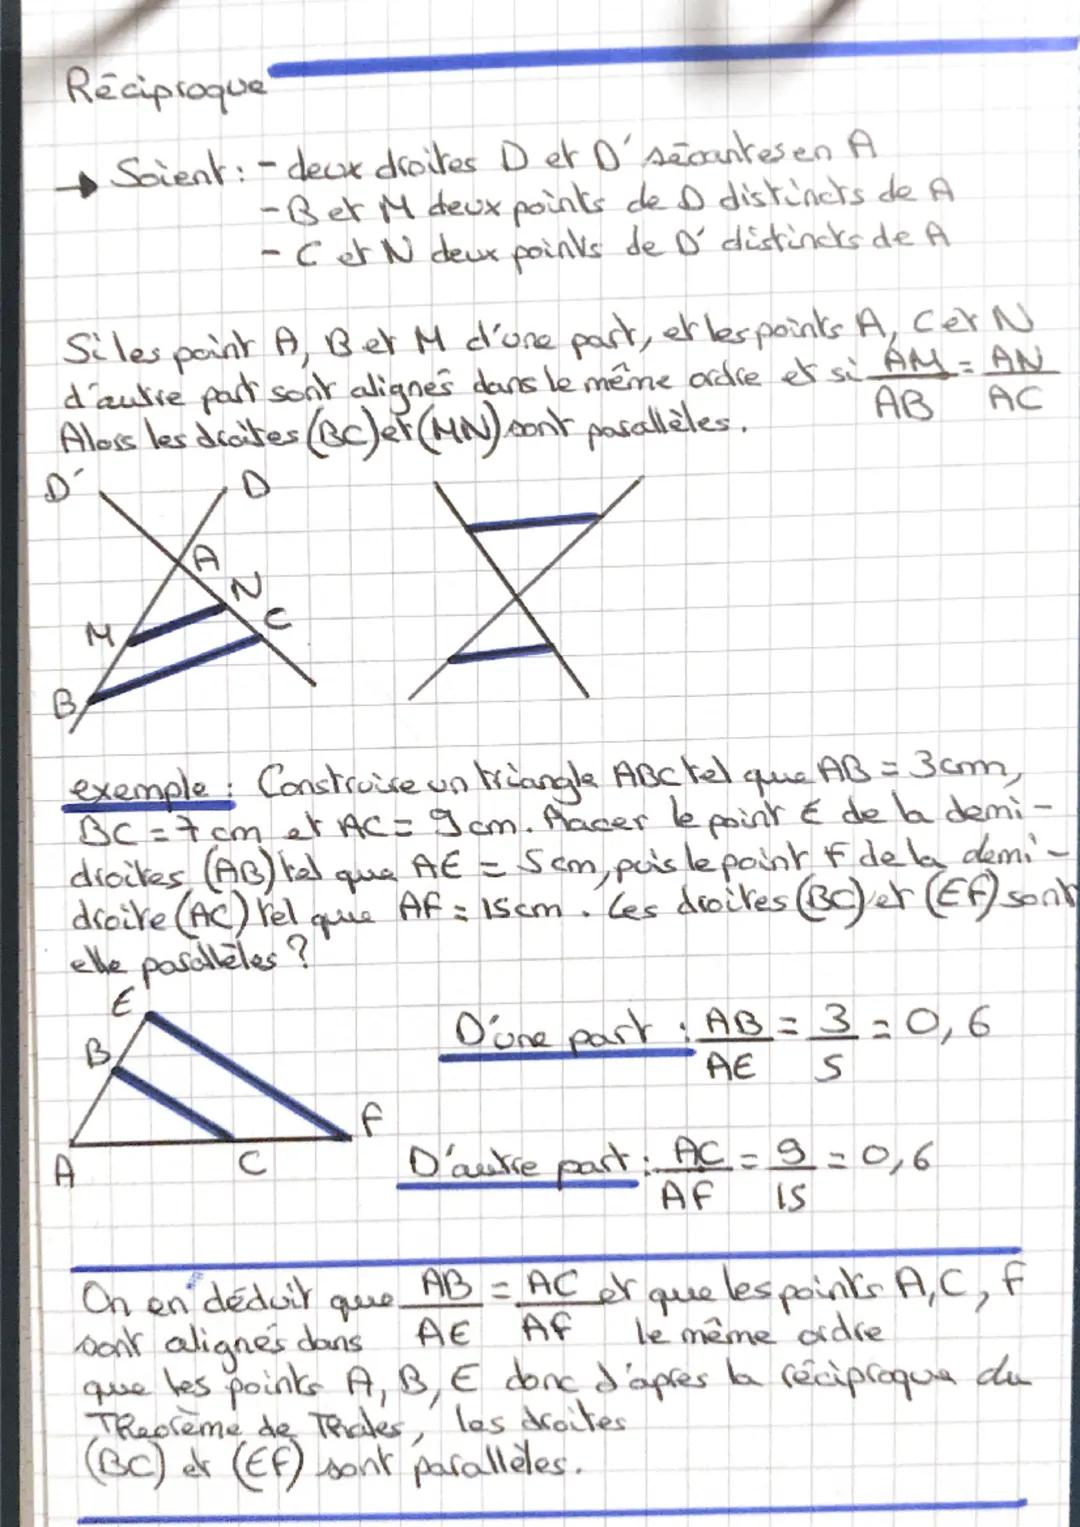 Réciproque
→ Soient : - deux droites D et D' sécantes en A
- B et M deux points de D distincts de A
- C et N deux points de D' distincts de A
Si les point A, B et M d'une part, et les points A, C et N
d'autre part sont alignés dans le même ordre et si AM/AB = AN/AC
Alors les droites (BC) et (MN) sont parallèles.
D' D
A
N
C
M
B
exemple : Construire un triangle ABC tel que AB = 3cm,
BC = 7cm et AC = 9cm. Placer le point E de la demi-
droites (AB) tel que AE = 5cm, puis le point F de la demi-
droite (AC) tel que AF = 15cm. Les droites (BC) et (EF) sont
elle parallèles ?
E
B
F
A C
D'une part : AB/AE = 3/5 = 0,6
D'autre part : AC/AF = 9/15 = 0,6
On en déduit que AB/AE = AC/AF et que les points A, C, F
sont alignés dans le même ordre
que les points A, B, E donc d'après la réciproque du
Théorème de Thales, les droites
(BC) et (EF) sont parallèles.